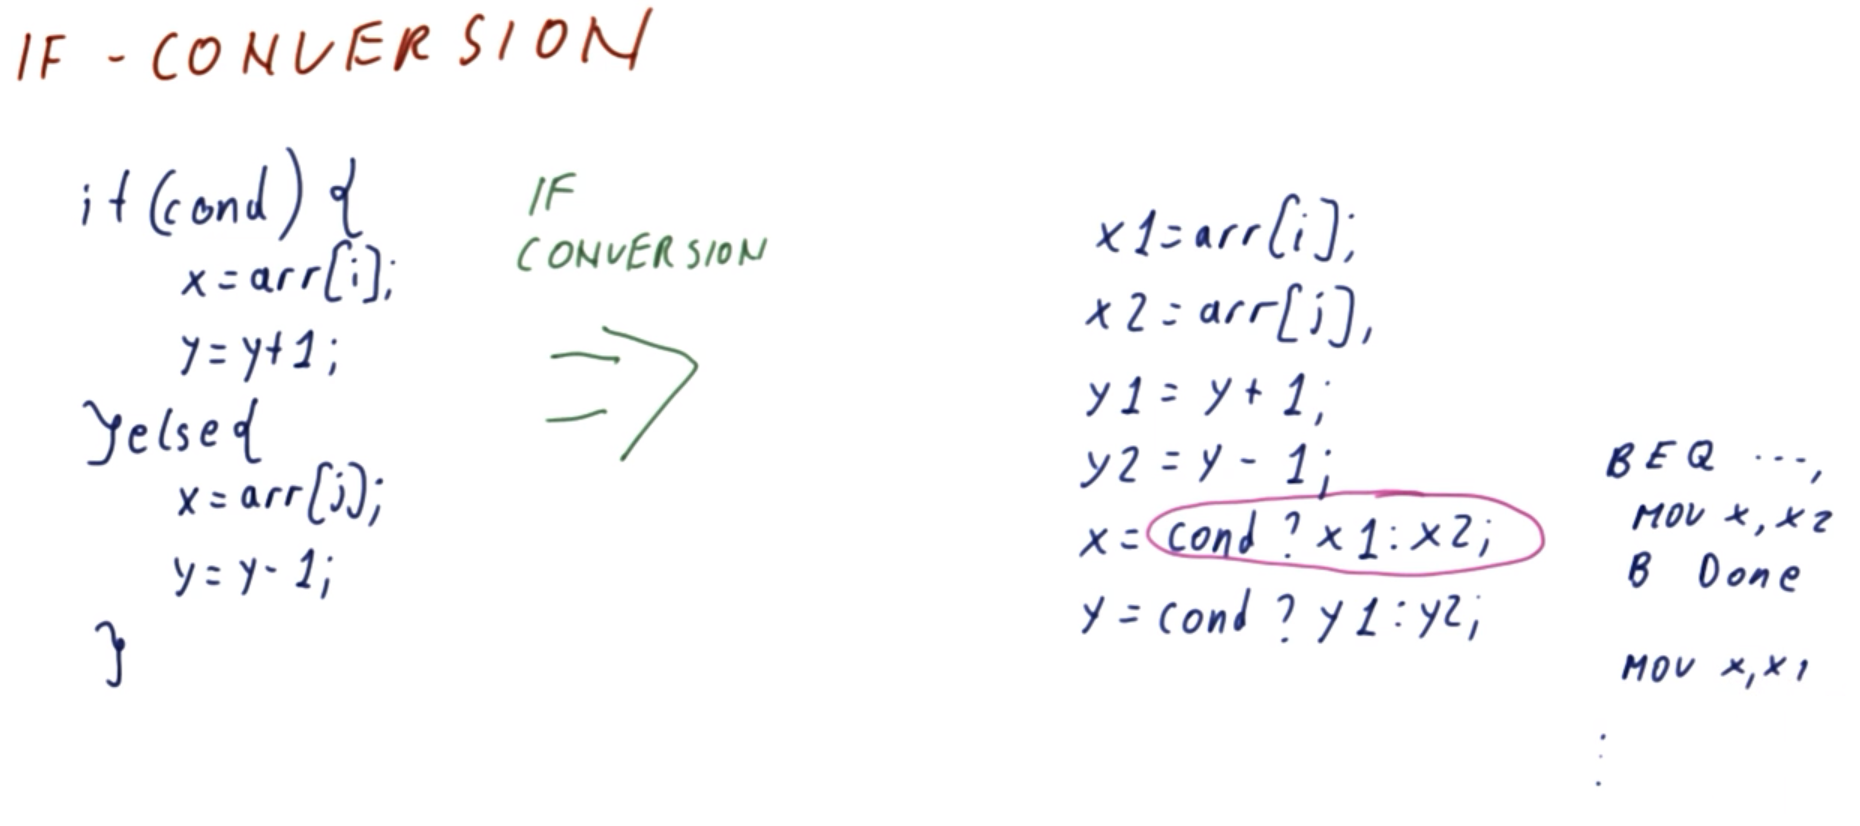 IF - CONVERSION
if (cond) {
x = arr[i];
y = y+1;
}else{
x = arr[j];
y = y- 1;
}
IF
CONVERSION
x1=arr[i];
x2 = arr[j],
y1 = y + 1;
y2 = y - 1;
x = cond ? x1 : x2;
y = cond ? y1 : y2;
BEQ ...,
MOV x, x2
B Done
MOV x, x1